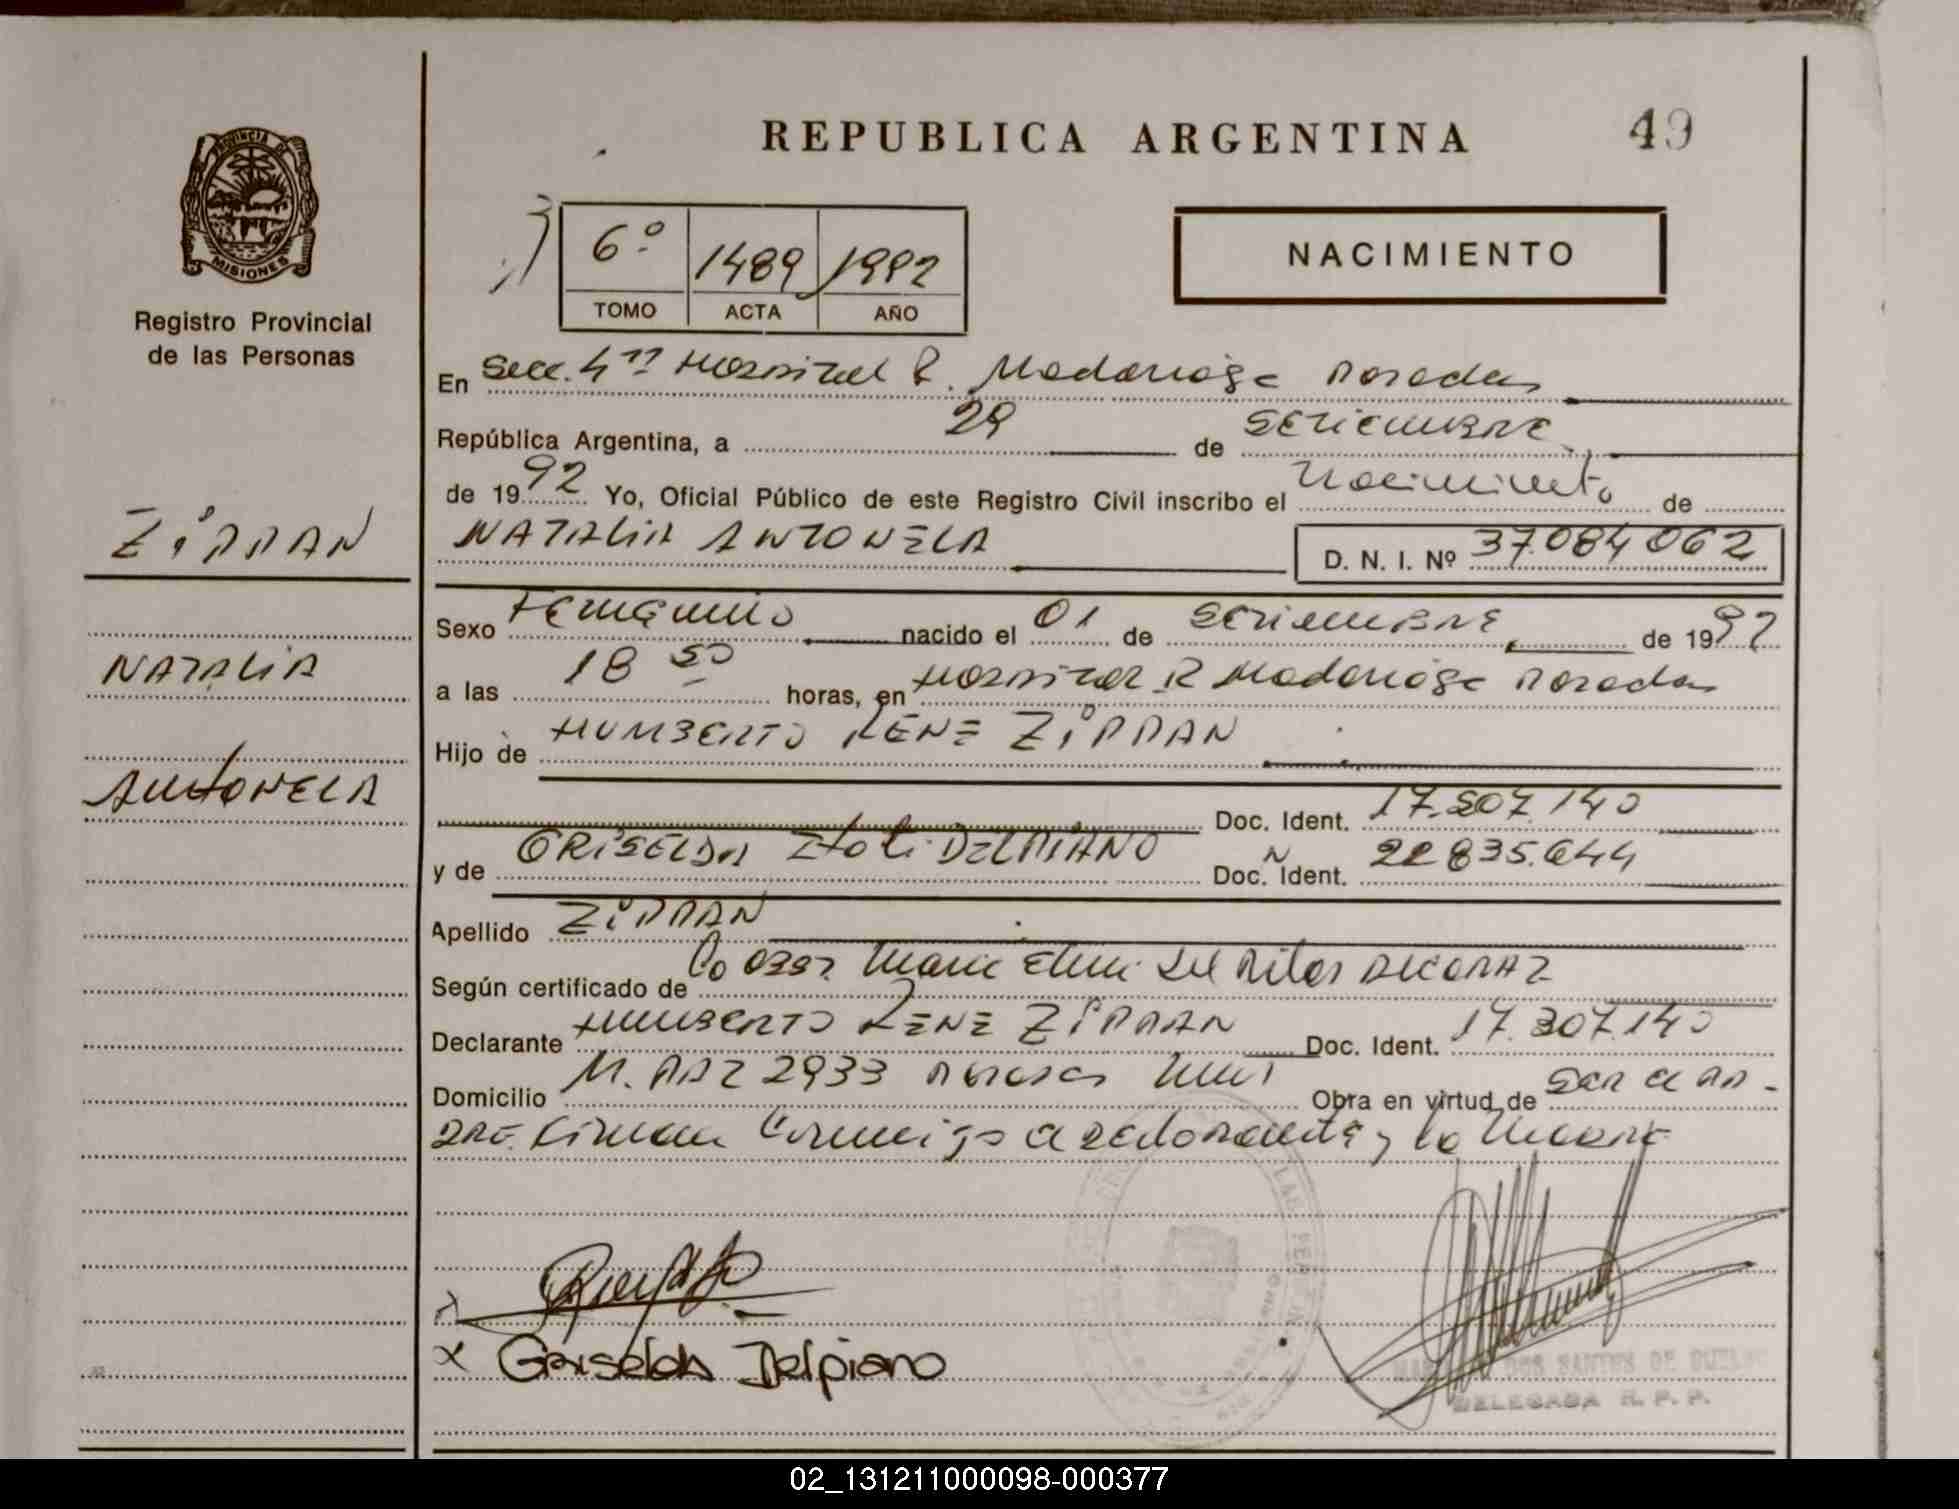 REPUBLICA ARGENTINA
49
PROVINCIA DE
MISIONES
Registro Provincial
de las Personas
6º 1489 1992
TOMO ACTA AÑO
NACIMIENTO
En Secc. 4ta Hospital R. Madariaga Posadas
República Argentina, a 29 de SETIEMBRE
de 1992 Yo, Oficial Público de este Registro Civil inscribo el Nacimiento de
NATALIA ANTONELA D. N. I. Nº 37.084.062
ZIPPAN
NATALIA
ANTONELA
Sexo Femenino nacido el 01 de SETIEMBRE de 1992
a las 18 50 horas, en Hospital R Madariaga Posadas
Hijo de HUMBERTO RENE ZIPPAN
Doc. Ident. 17.307.140
y de GRISELDA DELPIANO Doc. Ident. 22.835.644
Apellido ZIPPAN
Según certificado de Maria del Pilar
Declarante HUMBERTO RENE ZIPPAN Doc. Ident. 17.307.140
Domicilio M. PAZ 2933 Posadas Mnes Obra en virtud de ser el pa-
dre. Firman Conmigo el declarante y la Madre
x Griselda Delpiano
DOS SANTOS DE
DELEGADA R. P. P.
02_131211000098-000377